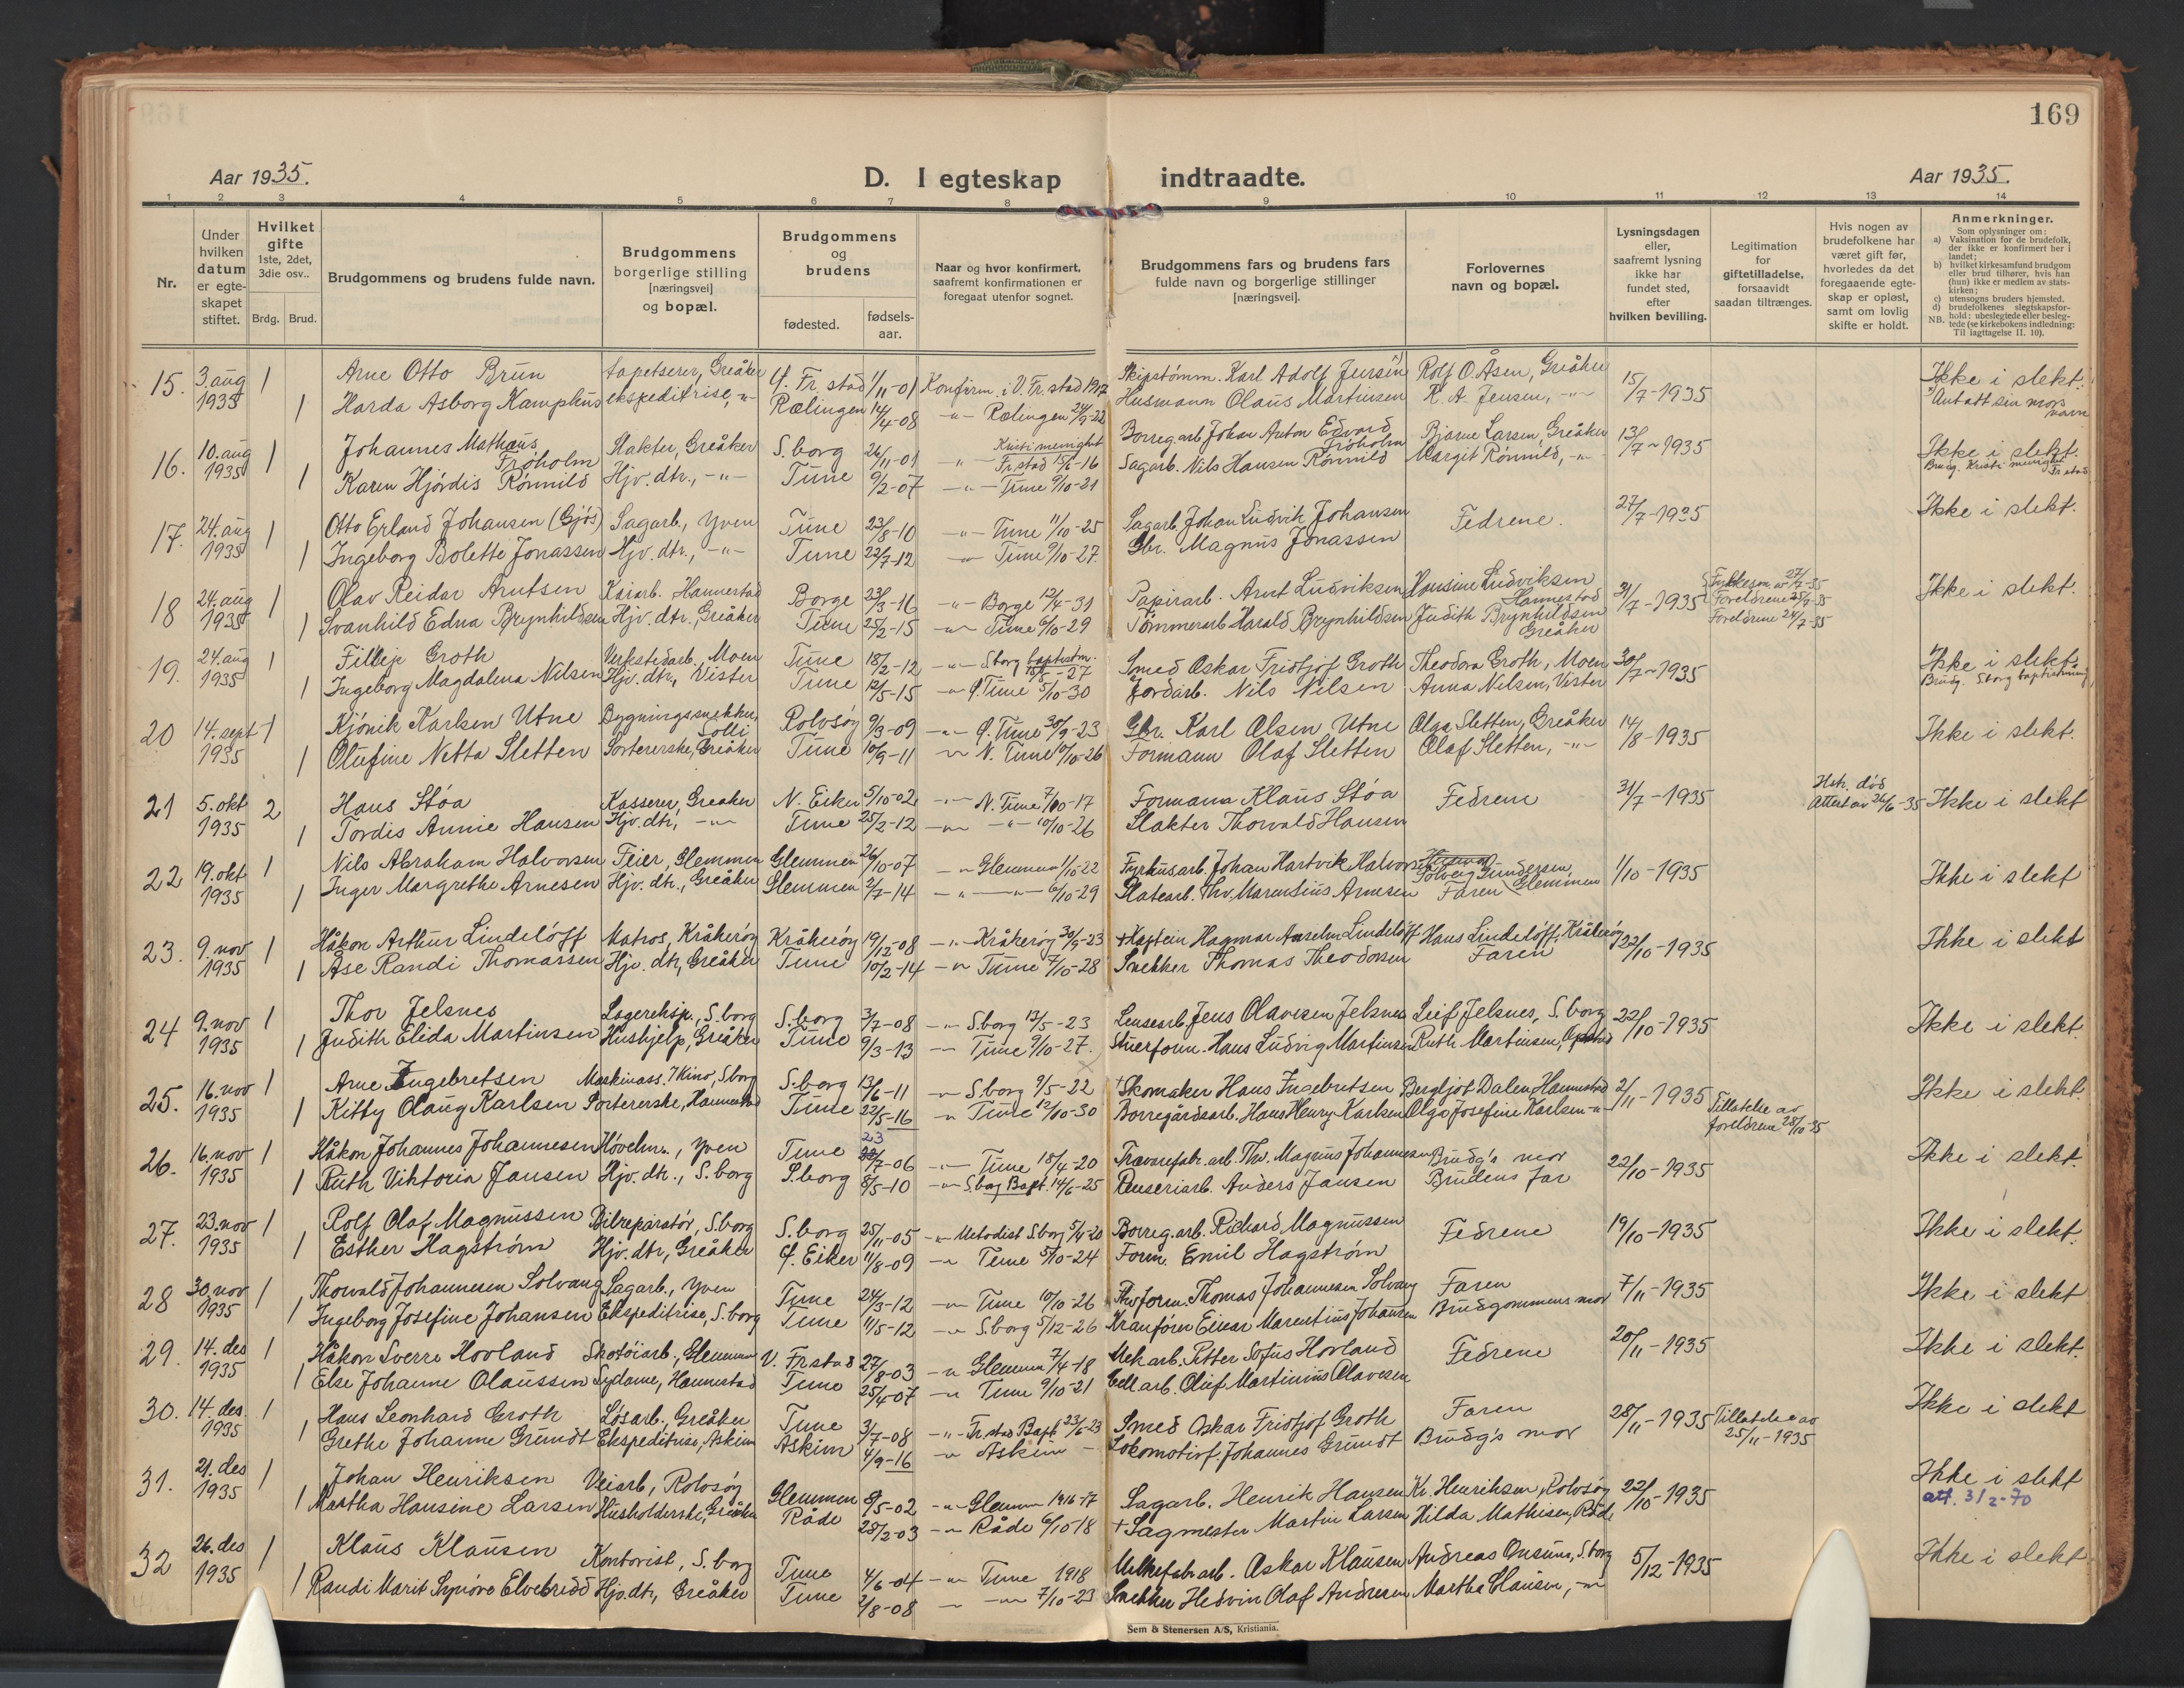 169
Aar 1935.
D. I egteskap indtraadte.
Aar 1935.
1 2 3 4 5 6 7 8 9 10 11 12 13 14
Nr.
Under hvilken datum er egte-skapet stiftet.
Hvilket gifte 1ste, 2det, 3die osv..
Brdg. Brud.
Brudgommens og brudens fulde navn.
Brudgommens borgerlige stilling [næringsvei] og bopæl.
Brudgommens og brudens
fødested. fødsels-aar.
Naar og hvor konfirmert, saafremt konfirmationen er foregaat utenfor sognet.
Brudgommens fars og brudens fars fulde navn og borgerlige stillinger [næringsvei].
Forlovernes navn og bopæl.
Lysningsdagen eller, saafremt lysning ikke har fundet sted, efter hvilken bevilling.
Legitimation for giftetilladelse, forsaavidt saadan tiltrænges.
Hvis nogen av brudefolkene har været gift før, hvorledes da det foregaaende egte-skap er opløst, samt om lovlig skifte er holdt.
Anmerkninger.
Som oplysninger om:
a) Vaksination for de brudefolk, der ikke er konfirmert her i landet;
b) hvilket kirkesamfund brudgom eller brud tilhører, hvis han (hun) ikke er medlem av stats-kirken;
c) utensogns bruders hjemsted.
d) brudefolkenes slegtskapsfor-hold: ubeslegtede eller besleg-tede (se kirkebokens indledning:
NB. Til iagttagelse II. 10).
15. 3. aug 1935 1 Arne Otto Brun tapetserer, Greåker G. Fr.stad 1/11-01 Konfirm. i V. Fr.stad 1917 Skipstømm. Karl Adolf Jensen Rolf O. Åsen, Greåker 15/7-1935 Ikke i slekt.
1 Harda Asborg Kamphus ekspeditrise, -"- Rælingen 14/4-08 -"- Rælingen 24/9-22 Husmann Olaus Martinsen R. A. Jensen, -"- Antatt sin mors navn
16. 10. aug 1935 1 Johannes Mathæus Frøholm Slakter, Greåker S.borg 26/11-01 -"- Kristi menighet Fr.stad 15/6-16 Borreg.arb. Johan Anton Edvard Frøholm Bjarne Larsen, Greåker 13/7-1935 Ikke i slekt.
1 Karen Hjørdis Rønnild Hjv. dtr., -"- Tune 9/2-07 -"- Tune 9/10-21 Sagarb. Nils Hansen Rønnild Margit Rønnild, -"- Brudg. Kristi menighet Fr.stad
17. 24. aug 1935 1 Otto Erland Johansen (Gjøs) Sagarb., Yven Tune 23/8-10 -"- Tune 11/10-25 Sagarb. Johan Ludvik Johansen Fedrene. 27/7-1935 Ikke i slekt.
1 Ingeborg Bolette Jonassen Hjv. dtr., -"- Tune 22/7-12 -"- Tune 9/10-27. Gbr. Magnus Jonassen
18 24. aug 1935 1 Olav Reidar Arntsen Kaiarb. Hannestad Borge 23/3-16 -"- Borge 12/4-31 Papirarb. Arnt Ludviksen Hansine Ludviksen Hannestad 31/7-1935 Fylkesm. av 27/7-35 Foreldrene 25/7-35 Ikke i slekt.
1 Svanhild Edna Brynhildsen Hjv. dtr., Greåker Tune 25/2-15 -"- Tune 6/10-29 Tømmerarb Harald Brynhildsen Judith Brynhildsen Greåker Foreldrene 24/7-35
19. 24. aug 1935 1 Fillip Groth Verkstedarb. Moen Tune 18/2-12 -"- S.borg baptistm. 18/5-27 Smed Oskar Fridtjof Groth Theodora Groth, Moen 30/7-1935 Ikke i slekt.
1 Ingeborg Magdalena Nilsen Hjv. dtr., Vister Tune 12/5-15 -"- Ø. Tune 5/10-30 Jordarb. Nils Nilsen Anna Nilsen, Vister Brudg. S.borg baptistmenig.
20 14. sept 1935 1 Kjønik Karlsen Utne Bygningssnekker, Solli Rolvsøy 9/3-09 -"- Ø. Tune 30/9-23 Gbr. Karl Olsen Utne Olga Sletten, Greåker 14/8-1935 Ikke i slekt.
1 Olufine Netta Sletten Sortererske, Greåker Tune 10/9-11 -"- N. Tune 10/10-26 Formann Olaf Sletten Olaf Sletten, -"-
21 5. okt 1935 2 Hans Støa Kasserer, Greaker N. Eiker 5/10-02 -"- N. Tune 7/10-17 Formann Klaus Støa Fedrene 31/7-1935 Hstr. død Attest av 26/6-35 Ikke i slekt
1 Tordis Annie Hansen Hjv. dtr., -"- Tune 25/2-12 -"- -"- 10/10-26 Slakter Thorvald Hansen
22 19. okt 1935 1 Nils Abraham Halvorsen Feier, Glemmen Glemmen 26/10-07 -"- Glemmen 1/10-22 Fyrhusarb. Johan Hartvik Halvorsen Solveig Gundersen, Glemmen 1/10-1935 Ikke i slekt
1 Inger Margrethe Arnesen Hjv. dtr., Greåker Glemmen 2/7-14 -"- -"- 6/10-29 Platearb. Thv. Marensius Arnesen Faren
23. 9. nov 1935 1 Håkon Arthur Lindeløff Matros, Kråkerøy Kråkerøy 19/12-08 -"- Kråkerøy 30/9-23 +Kaptein Hagmar Anselm Lindeløff Hans Lindeløff, Kråkerøy 22/10-1935 Ikke i slekt
1 Åse Randi Thomassen Hjv. dtr., Greåker Tune 10/2-14 -"- Tune 7/10-28 Snekker Thomas Theodorsen Faren
24 9. nov 1935 1 Thor Jelsnes Lagereksp., S.borg S.borg 3/7-08 -"- S.borg 13/5-23 Lensearb. Jens Olavesen Jelsnes Leif Jelsnes, S.borg 22/10-1935 Ikke i slekt.
1 Judith Elida Martinsen Hushjelp, Greåker Tune 9/3-13 -"- Tune 9/10-27. Stuerform. Hans Ludvig Martinsen Ruth Martinsen, Opstad
25. 16. nov 1935 1 Arne Ingebretsen Maskinass. i Kino, S.borg S.borg 13/6-11 -"- S.borg 9/5-22 +Skomaker Hans Ingebretsen Bergljot Dalen, Hannestad 2/11-1935 Ikke i slekt.
1 Kitty Olaug Karlsen Sortererske, Hannestad Tune 22/5-16 -"- Tune 12/10-30 Borregårdsarb. Hans Henry Karlsen Olga Josefine Karlsen -"- Tillatelse av foreldrene 28/10-35
26. 16. nov 1935 1 Håkon Johannes Johannesen Høvelm., Yven Tune 23/7-06 -"- Tune 18/4-20 Trævarefabr. arb. Thv. Magnus Johannesen Brudg's mor 22/10-1935 Ikke i slekt.
1 Ruth Viktoria Jansen Hjv. dtr., S.borg S.borg 8/5-10 -"- S.borg Bapt. 14/6-25 Renseriarb. Anders Jansen Brudens far
27. 23. nov 1935 1 Rolf Olaf Magnussen Bilreparatør, S.borg S.borg 25/11-05 -"- Metodist S.borg 5/4-20 Borreg.arb. Richard Magnussen Fedrene 19/10-1935 Ikke i slekt.
1 Esther Hagstrøm Hjv. dtr, Greåker Ø. Eiker 11/8-09 -"- Tune 5/10-24 Form. Emil Hagstrøm
28 30. nov 1935 1 Thorvald Johannesen Solvang Sagarb., Yven Tune 24/3-12 -"- Tune 10/10-26 Thv form. Thomas Johannesen Solvang Faren 7/11-1935 Ikke i slekt
1 Ingeborg Josefine Johansen Ekspeditrise, S.borg Tune 11/5-12 -"- S.borg 5/12-26 Kranfører Einar Marentius Johansen Brudgommens mor
29. 14. des 1935 1 Håkon Sverre Hovland Skotøiarb., Glemmen V. Fr.stad 27/8-03 -"- Glemmen 7/4-18 Mek arb. Petter Sofus Hovland Fedrene 20/11-1935 Ikke i slekt.
1 Else Johanne Olaussen Sydame, Hannestad Tune 25/4-07 -"- Tune 9/10-21 Cell arb. Oluf Martinius Olavesen
30. 14. des. 1935 1 Hans Leonhard Groth Løsarb., Greåker Tune 3/7-08 -"- Fr.stad Bapt. 23/6-23 Smed Oskar Fridtjof Groth Faren 28/11-1935 Tillatelse av 25/11-1935 Ikke i slekt
1 Grethe Johanne Grundt Ekspeditrise, Askim Askim 4/9-16 -"- Askim - Lokomotivf. Johannes Grundt Brudg's mor
31. 21. des 1935 1 Johan Henriksen Veiarb, Rolvsøy Glemmen 8/5-02 -"- Glemmen 1916-17 Sagarb. Henrik Hansen Kr. Henriksen, Rolvsøy 22/10-1935 Ikke i slekt
1 Martha Hansine Larsen Husholderske, Greåker Råde 28/2-03 -"- Råde 6/10-18 +Sagmester Martin Larsen Hilda Mathisen, Råde att. 3/2-70
32 26. des 1935 1 Klaus Klausen Kontorist, S.borg Tune 4/6-04 -"- Tune 1918 Melkefabr arb. Oskar Klausen Andreas Onsum, S.borg 5/12-1935 Ikke i slekt
1 Randi Marit Synøve Elvebredd Hjv. dtr., Greåker Tune 2/8-08 -"- -"- 7/10-23 Snekker Hedvin Olaf Andresen Martha Clausen, -"-
Sem & Stenersen A/S, Kristiania.